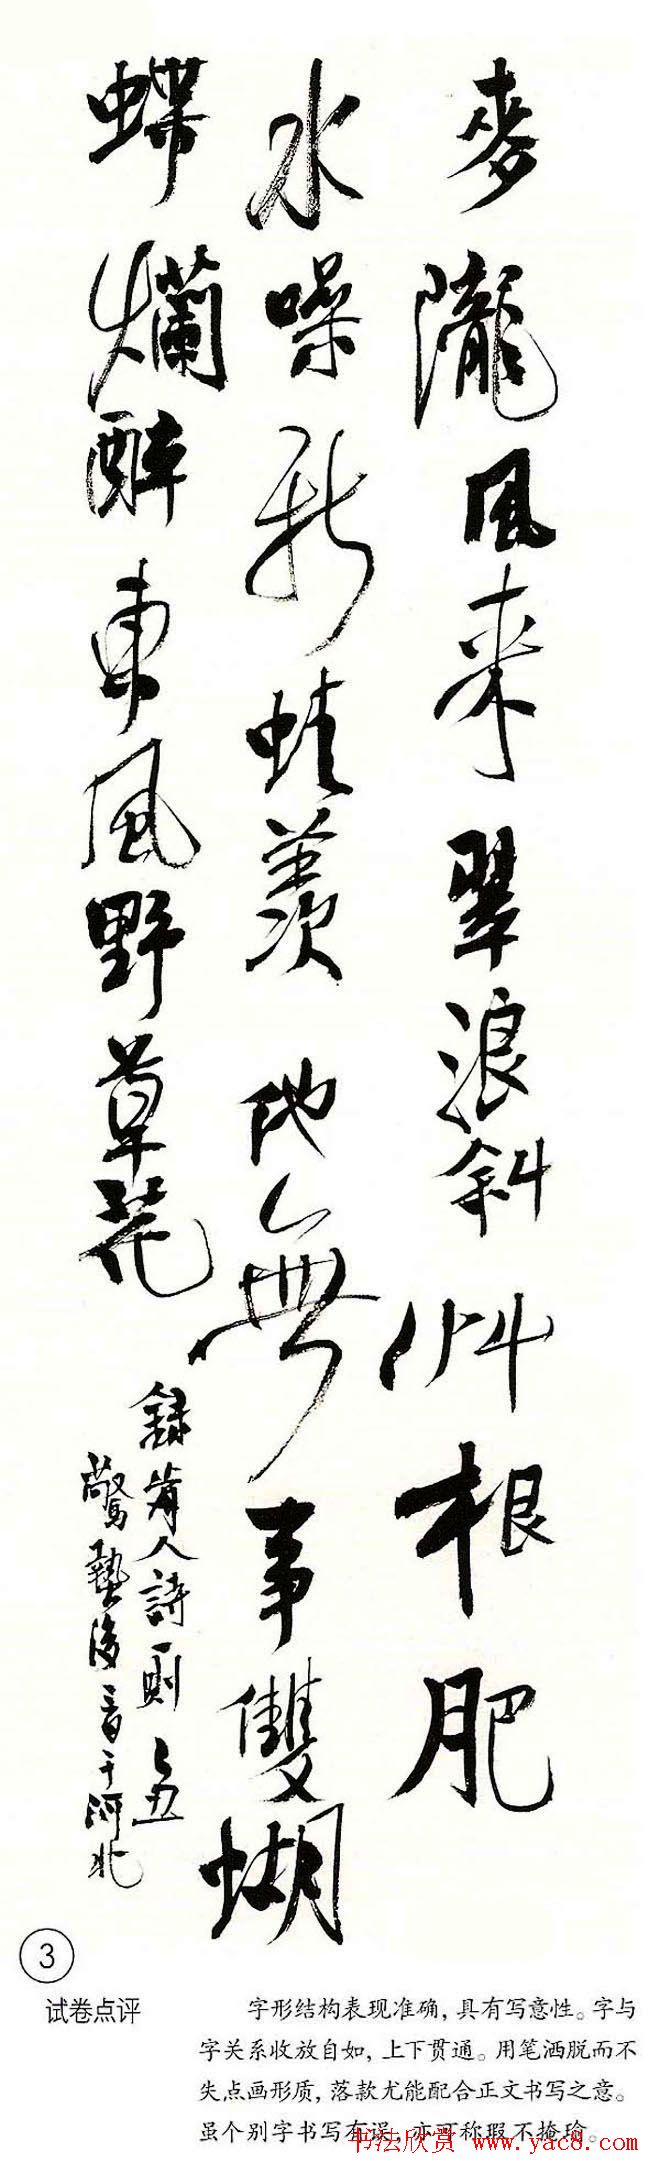 麥隴風來翠浪斜艸根肥
水噪新蛙羨他無事雙蝴
蝶爛醉東風野草花
錄前人詩一則 乙丑
驚蟄後言于河北
3
试卷点评
字形结构表现准确，具有写意性。字与
字关系收放自如，上下贯通。用笔洒脱而不
失点画形质，落款尤能配合正文书写之意。
虽个别字书写有误，亦可称瑕不掩瑜。
书法欣赏 www.yac8.com